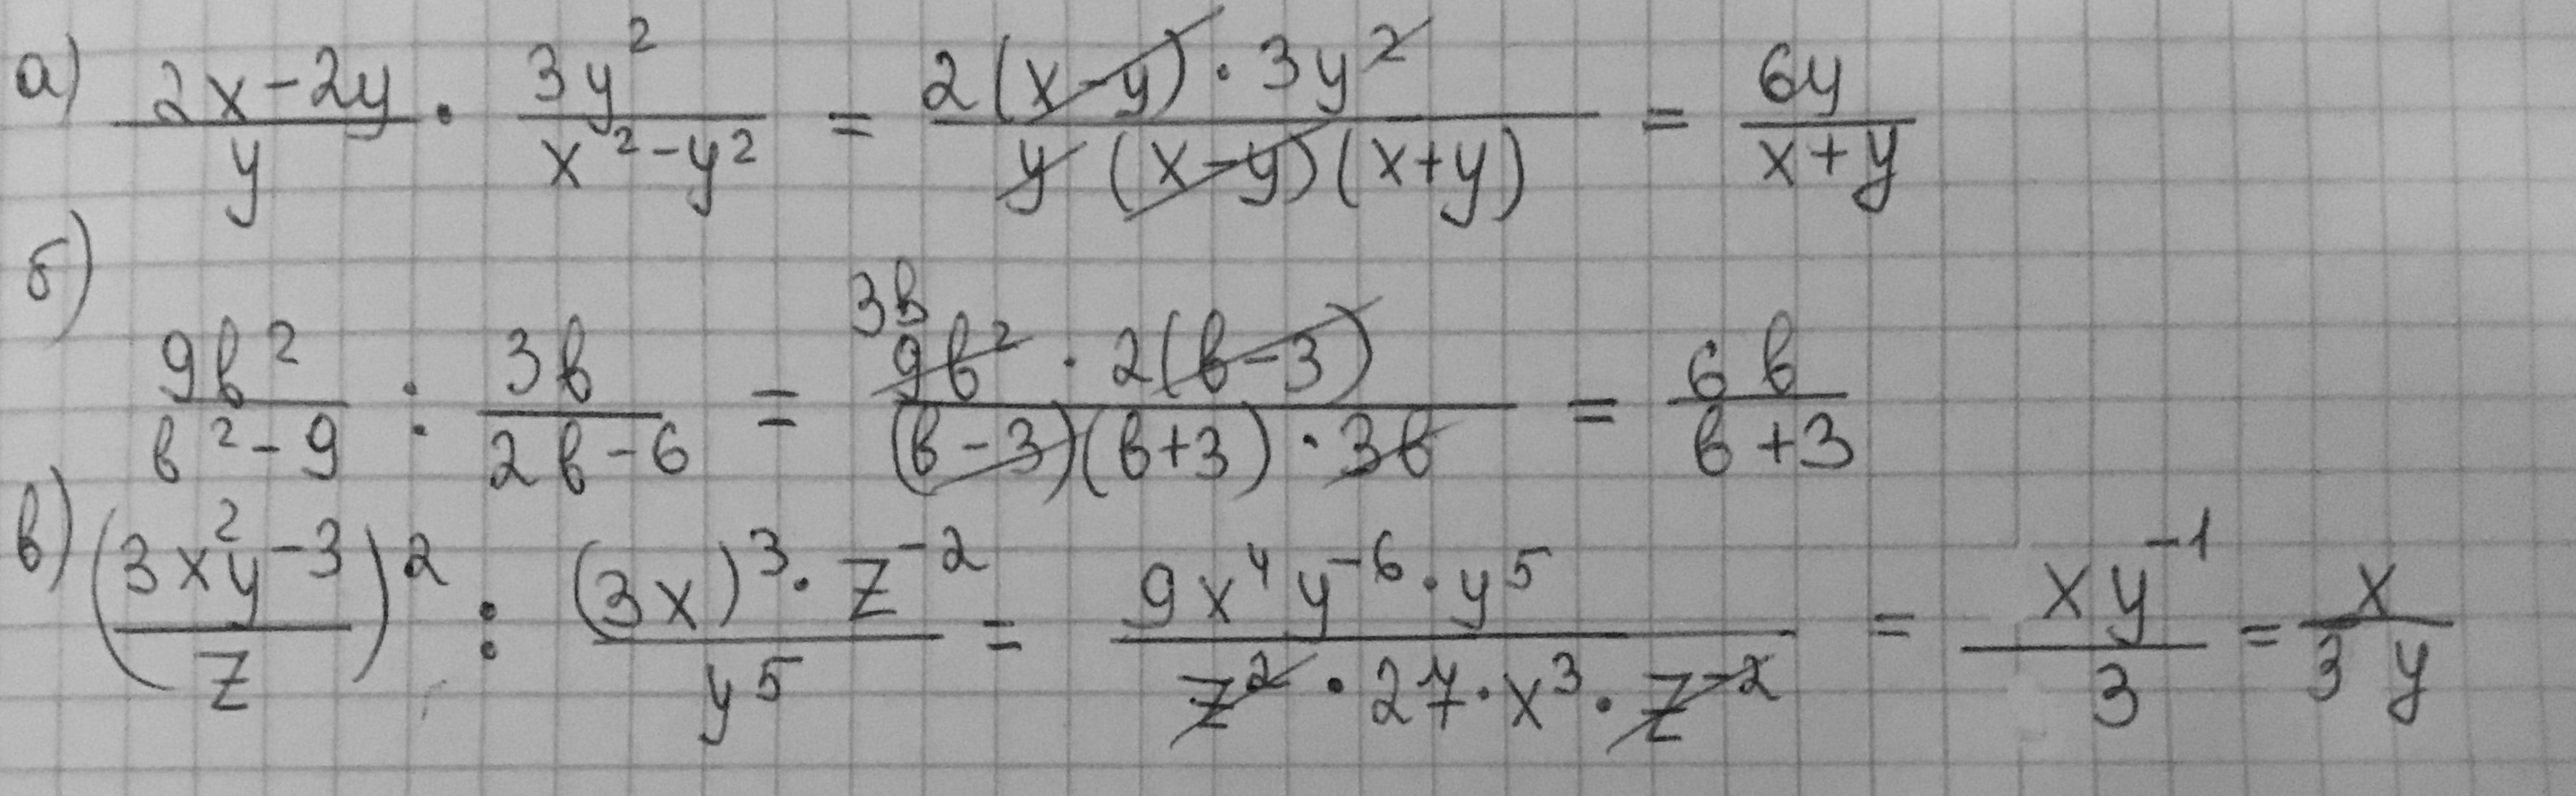 а) (2x-2y)/y · 3y²/(x²-y²) = (2(x-y)·3y²)/(y(x-y)(x+y)) = 6y/(x+y)
б) 9b²/(b²-9) : 3b/(2b-6) = 3b (9b²·2(b-3))/((b-3)(b+3)·3b) = 6b/(b+3)
в) (3x²y⁻³/z)² : ((3x)³·z⁻²)/y⁵ = (9x⁴y⁻⁶·y⁵)/(z²·27·x³·z⁻²) = xy⁻¹/3 = x/(3y)